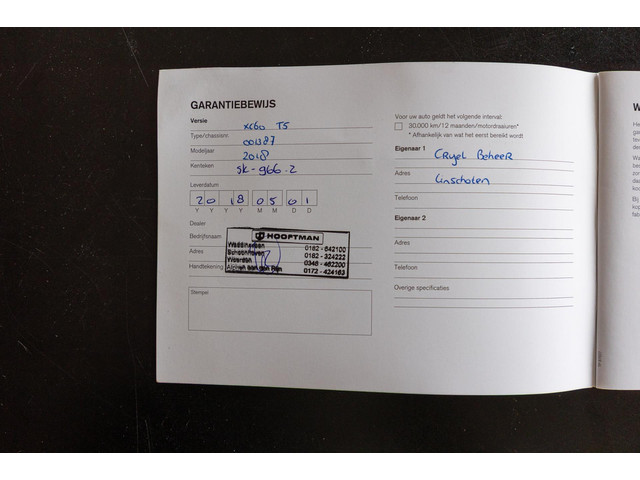 GARANTIEBEWIJS
Versie XC60 T5
Type/chassisnr. 001187
Modeljaar 2018
Kenteken SK-966.Z
Leverdatum
20 18 05 01
Y Y Y Y M M D D
Dealer
Bedrijfsnaam
Adres
Handtekening
HOOFTMAN
Waddinxveen 0182 - 642100
Schoonhoven 0182 - 324222
Woerden 0348 - 462200
Alphen aan den Rijn 0172 - 424163
Stempel
Voor uw auto geldt het volgende interval:
30.000 km/12 maanden/motordraaiuren*
* Afhankelijk van wat het eerst bereikt wordt
Eigenaar 1 Cruyel Beheer
Adres Linschoten
Telefoon
Eigenaar 2
Adres
Telefoon
Overige specificaties